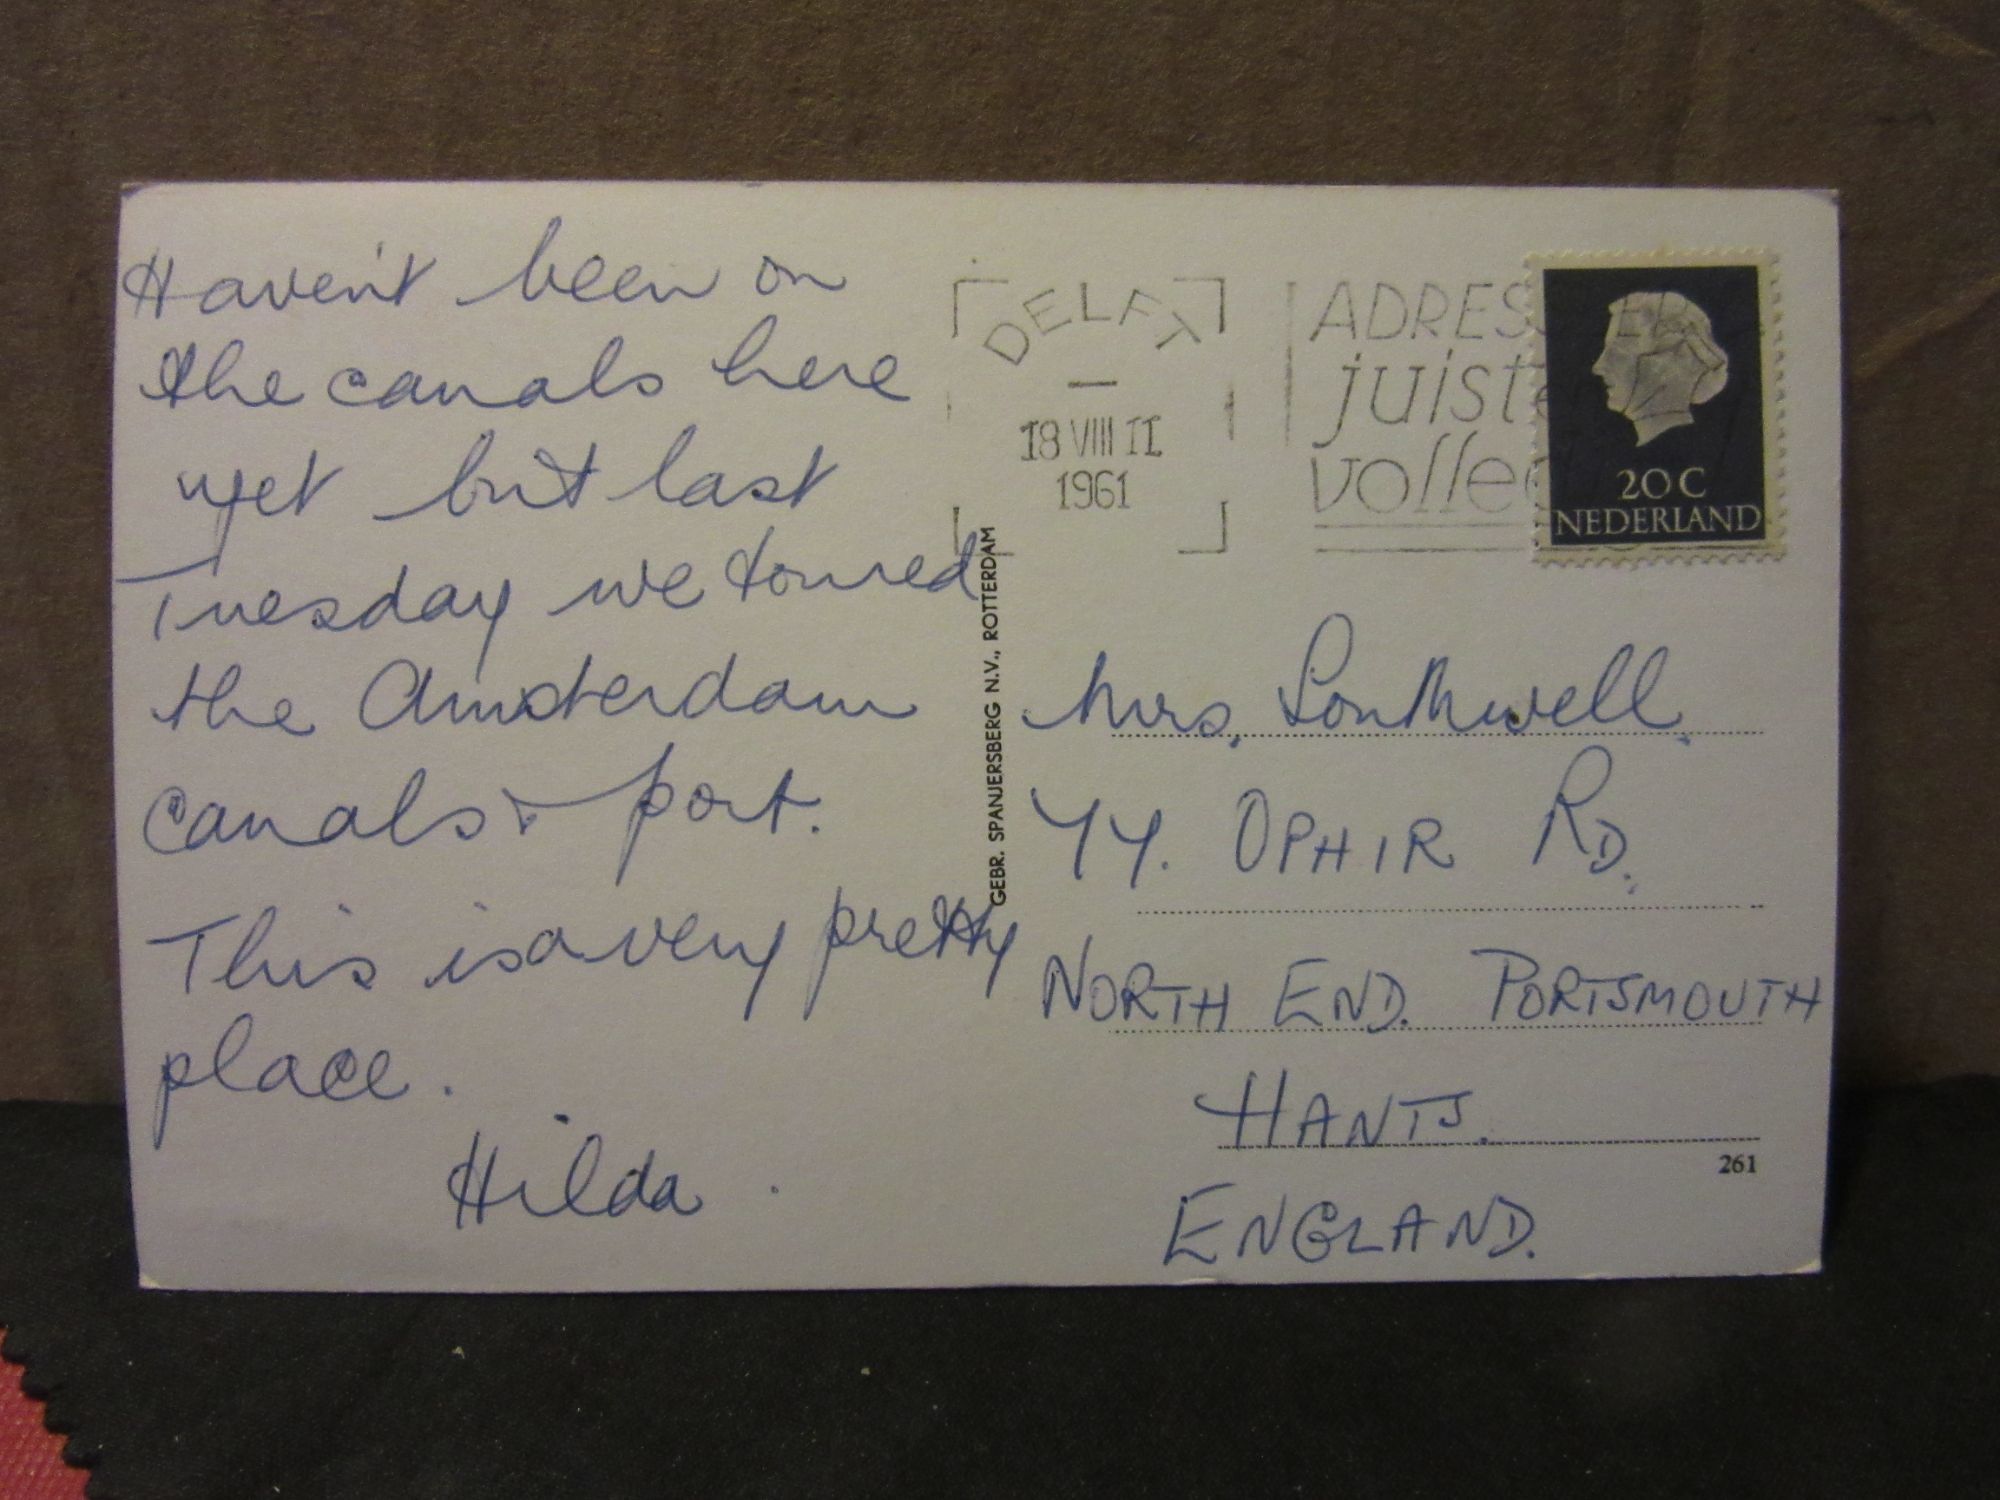 Haven't been on
the canals here
yet but last
Tuesday we toured
the Amsterdam
canals & port.
This is a very pretty
place.
Hilda.
GEBR. SPANJERSBERG N.V., ROTTERDAM
DELFT
18 VIII 11
1961
ADRES
juist
volle
20 C
NEDERLAND
Mrs. Southwell.
44. OPHIR RD.
NORTH END. PORTSMOUTH
HANTS.
261
ENGLAND.